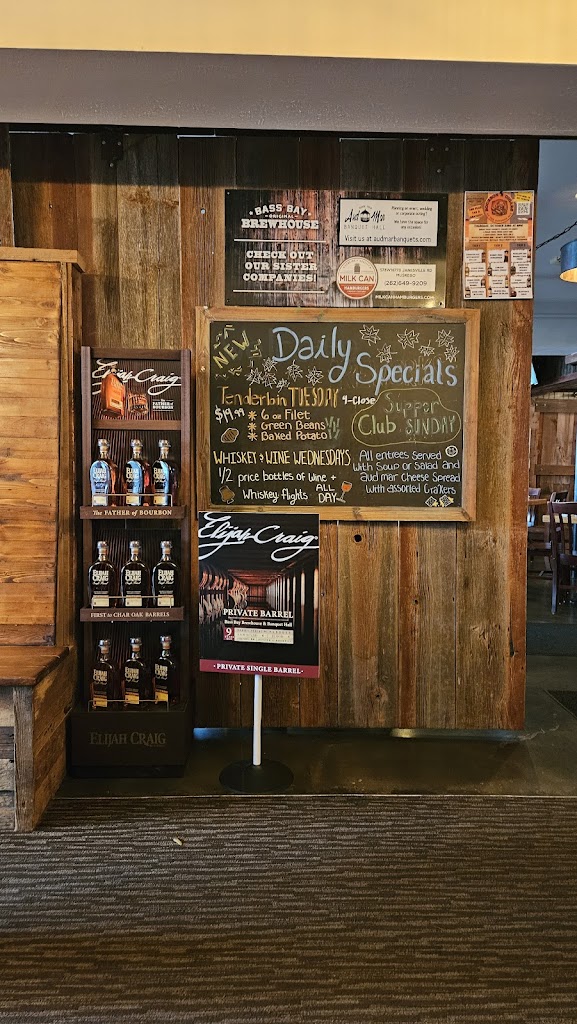 BASS BAY
ORIGINAL
BREWHOUSE
CHECK OUT
OUR SISTER
COMPANIES!
Aud Mar
BANQUET HALL
Visit us at audmarbanquets.com
MILK CAN
HAMBURGERS
MUSKEGO
(262)649-9209
MILKCANHAMBURGERS.COM
NEW
Daily
Specials
Tenderloin TUESDAY 4-Close
$19.99 * 6 oz Filet
* Green Beans
* Baked Potato
Supper
Club SUNDAY
WHISKEY & WINE WEDNESDAYS
1/2 price bottles of Wine +
Whiskey flights ALL DAY
All entrees Served
with Soup or Salad and
aud mar Cheese Spread
with assorted Craxers
Elijah Craig
The FATHER of BOURBON
The FATHER of BOURBON
ELIJAH CRAIG
ELIJAH CRAIG
ELIJAH CRAIG
FIRST to CHAR OAK BARRELS
ELIJAH CRAIG
ELIJAH CRAIG
ELIJAH CRAIG
ELIJAH CRAIG
Elijah Craig
PRIVATE BARREL
Bass Bay Brewhouse & Banquet Hall
9
• PRIVATE SINGLE BARREL •